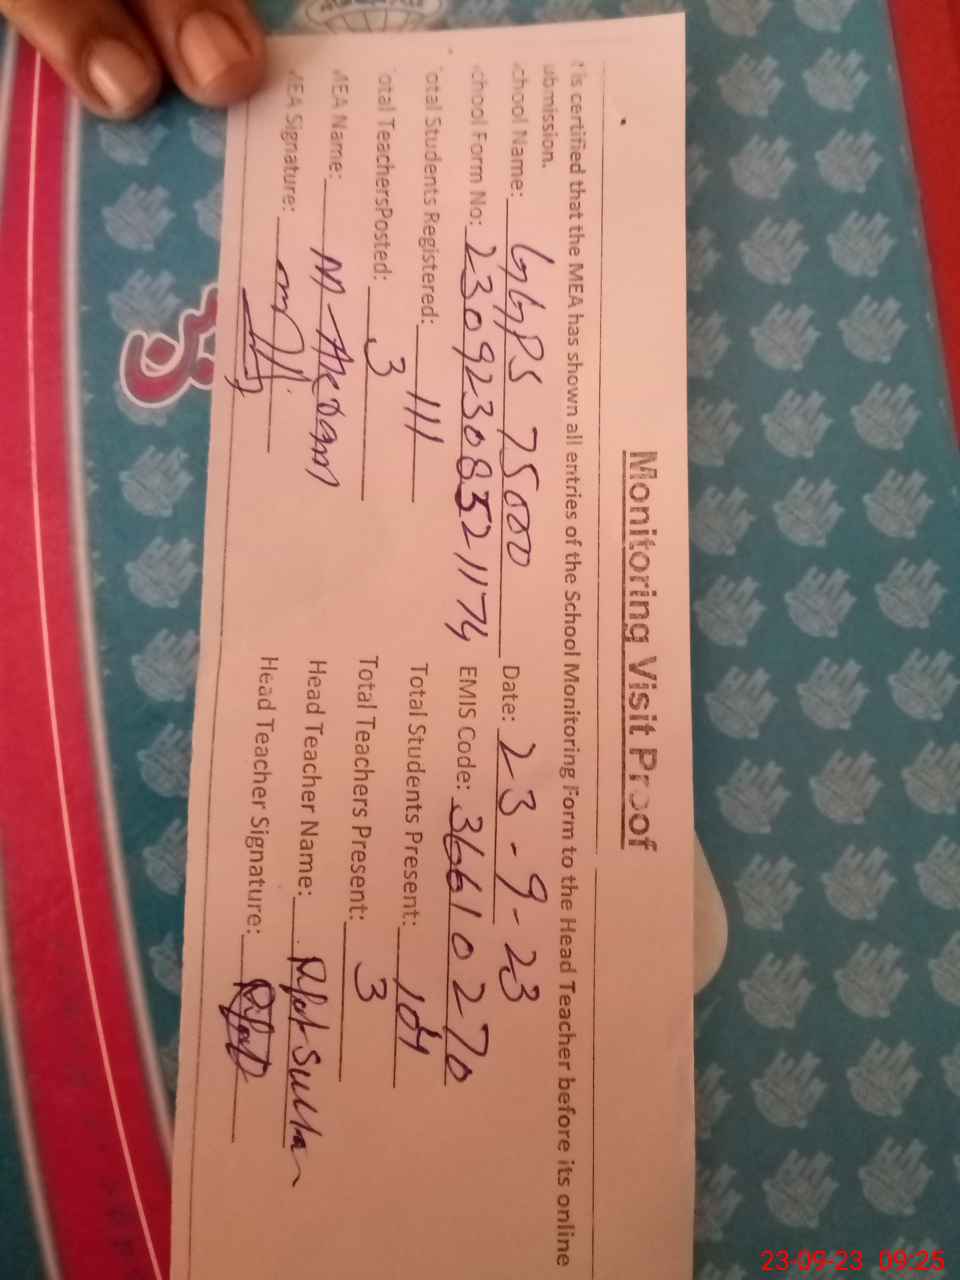 Monitoring Visit Proof
t is certified that the MEA has shown all entries of the School Monitoring Form to the Head Teacher before its online
ubmission.
chool Name: GGPS 75000 Date: 23-9-23
chool Form No: 23092308321174 EMIS Code: 36610270
otal Students Registered: 111 Total Students Present: 104
otal TeachersPosted: 3 Total Teachers Present: 3
MEA Name: M Head Teacher Name: Rfat Sultan
MEA Signature: Head Teacher Signature: Rfat
23-09-23 09:25